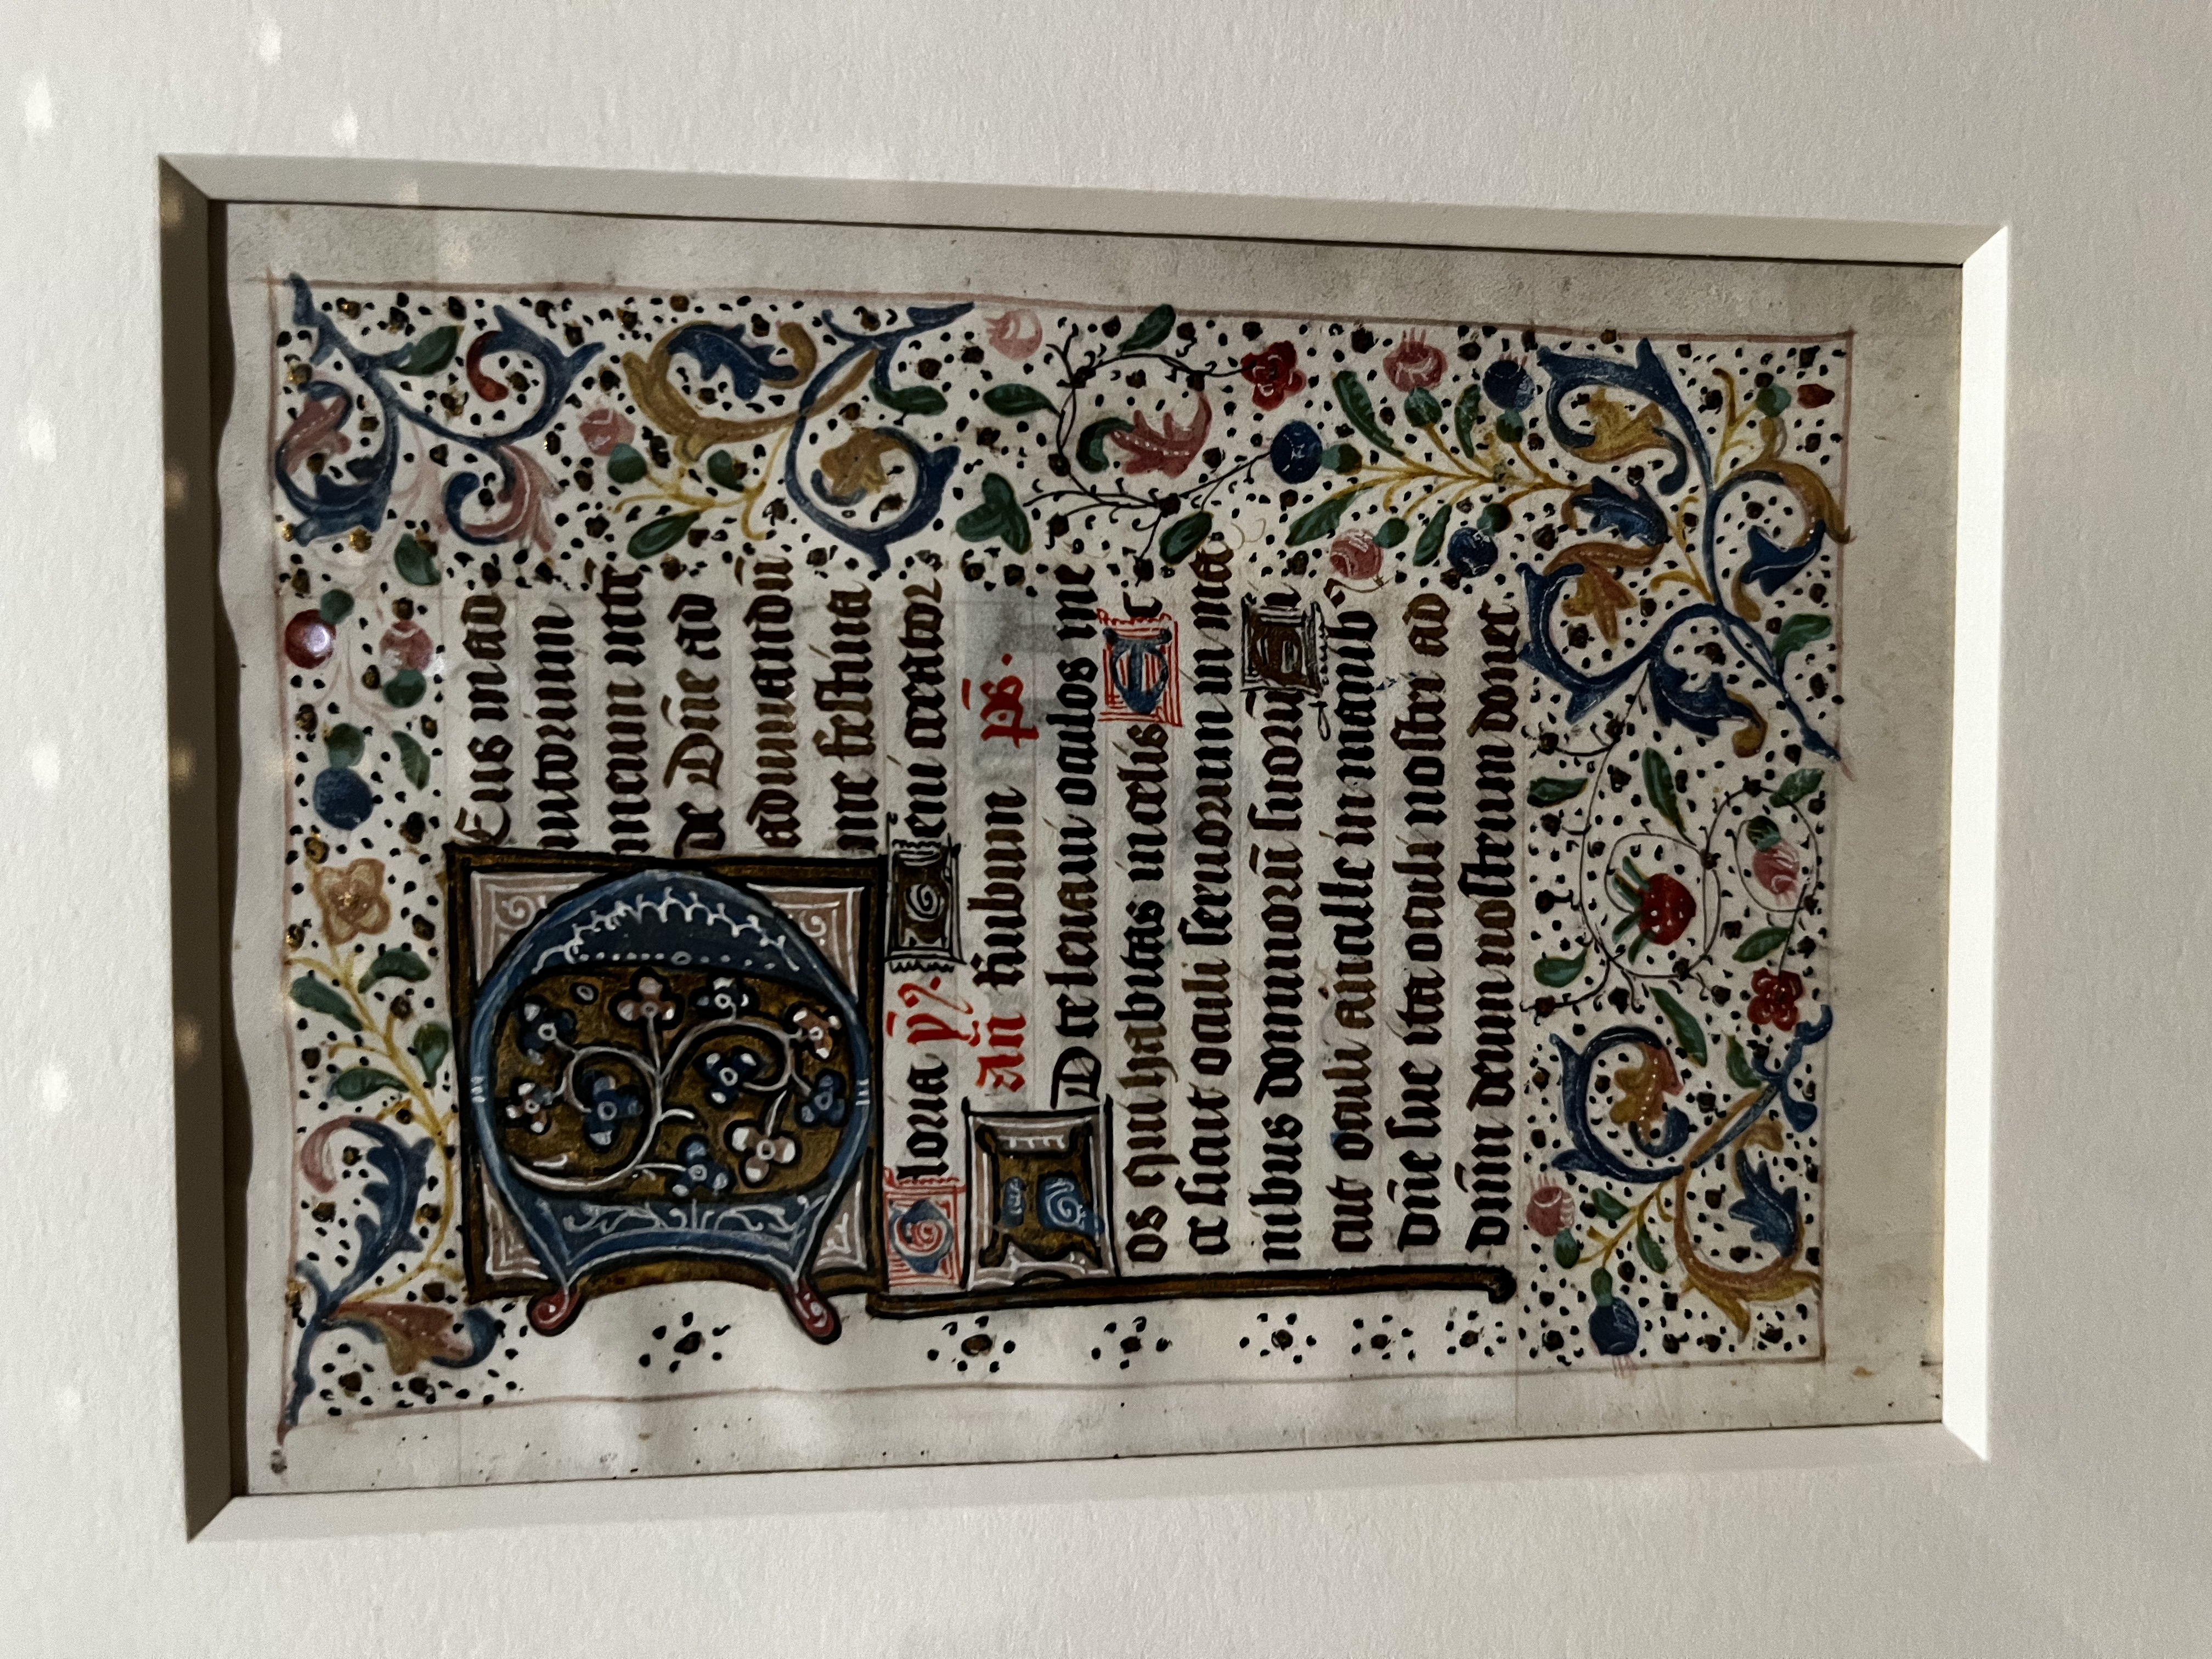 DEus in ad
iutorium
meum intē
de Dñe ad
adiuuandū
me festina
Gloria pr̄. Veni creator
Añ rubum ps.
AD te leuaui oculos me
os qui habitas in celis Ec
ce sicut oculi seruorum in ma
nibus dominorū suorū Si
cut oculi ancille in manibꝰ
dñe sue ita oculi nostri ad
dñm deum nostrum donec